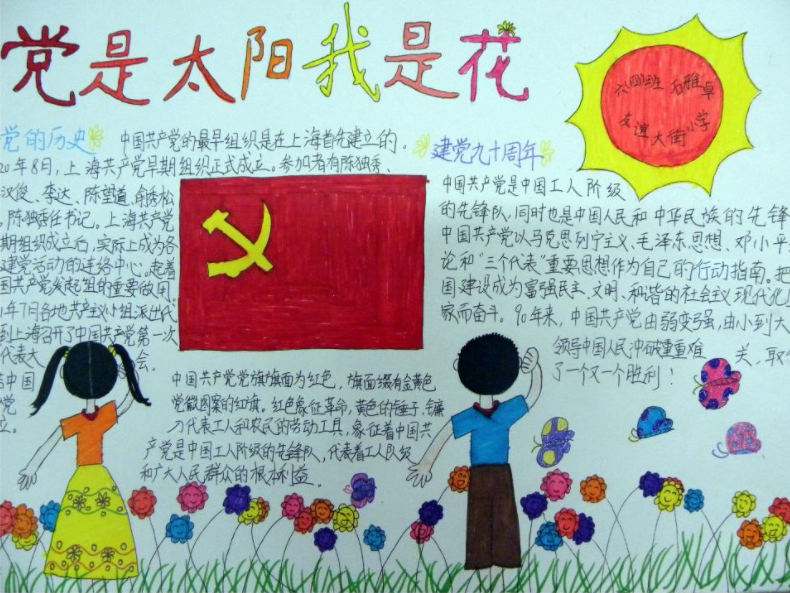 党是太阳我是花
六(四)班 石雅卓
友谊大街小学
党的历史
中国共产党的最早组织是在上海首先建立的。
20年8月，上海共产党早期组织正式成立。参加者有陈独秀、
汉俊、李达、陈望道、俞秀松
，陈独秀任书记。上海共产党
期组织成立后，实际上成为各
建党活动的连络中心，起着
国共产党发起组的重要做用。
1年7月各地共产主义小组派出代
到上海召开了中国共产党第一次
代表大会，
中国
党
立。
中国共产党党旗旗面为红色，旗面缀有金黄色
党徽图案的红旗。红色象征革命，黄色的锤子、镰
刀代表工人和农民的劳动工具，象征着中国共
产党是中国工人阶级的先锋队，代表着工人阶级
和广大人民群众的根本利益。
建党九十周年
中国共产党是中国工人阶级
的先锋队，同时也是中国人民和中华民族的先锋
中国共产党以马克思列宁主义、毛泽东思想、邓小平
论和“三个代表”重要思想作为自己的行动指南。把
国建设成为富强民主、文明、和谐的社会主义现代化
家而奋斗。90年来，中国共产党由弱变强，由小到大
领导中国人民冲破重重难关，取
了一个又一个胜利！